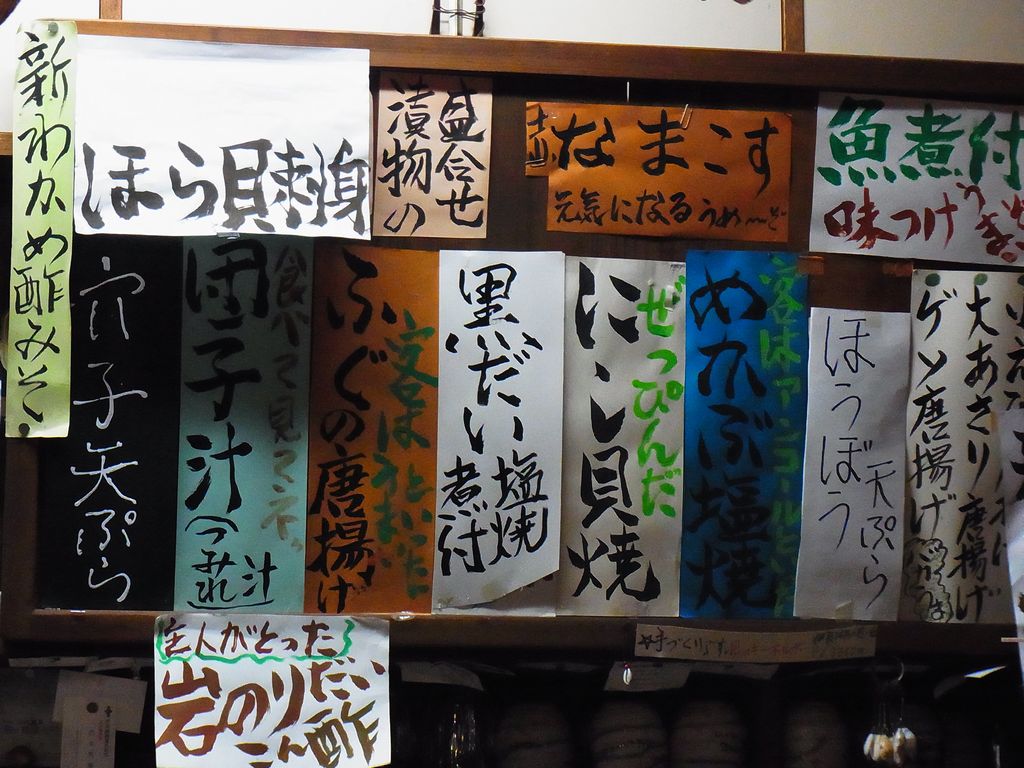 新わかめ酢みそ
ほら貝刺身
盛合せ
漬物の
赤なまこす
元気になるうめ〜ぞ
魚煮付
味つけ
うまいぞ
穴子天ぷら
団子汁
食べて見てネ
ふぐの唐揚げ
客は
黒だい塩焼
煮付
にし貝焼
ぜっぴんだ
めかぶ塩焼
客はアンコールと
ほうぼう
天ぷら
大あさり唐揚げ
ゲソ唐揚げ
主人がとった
岩のり
だいこん酢